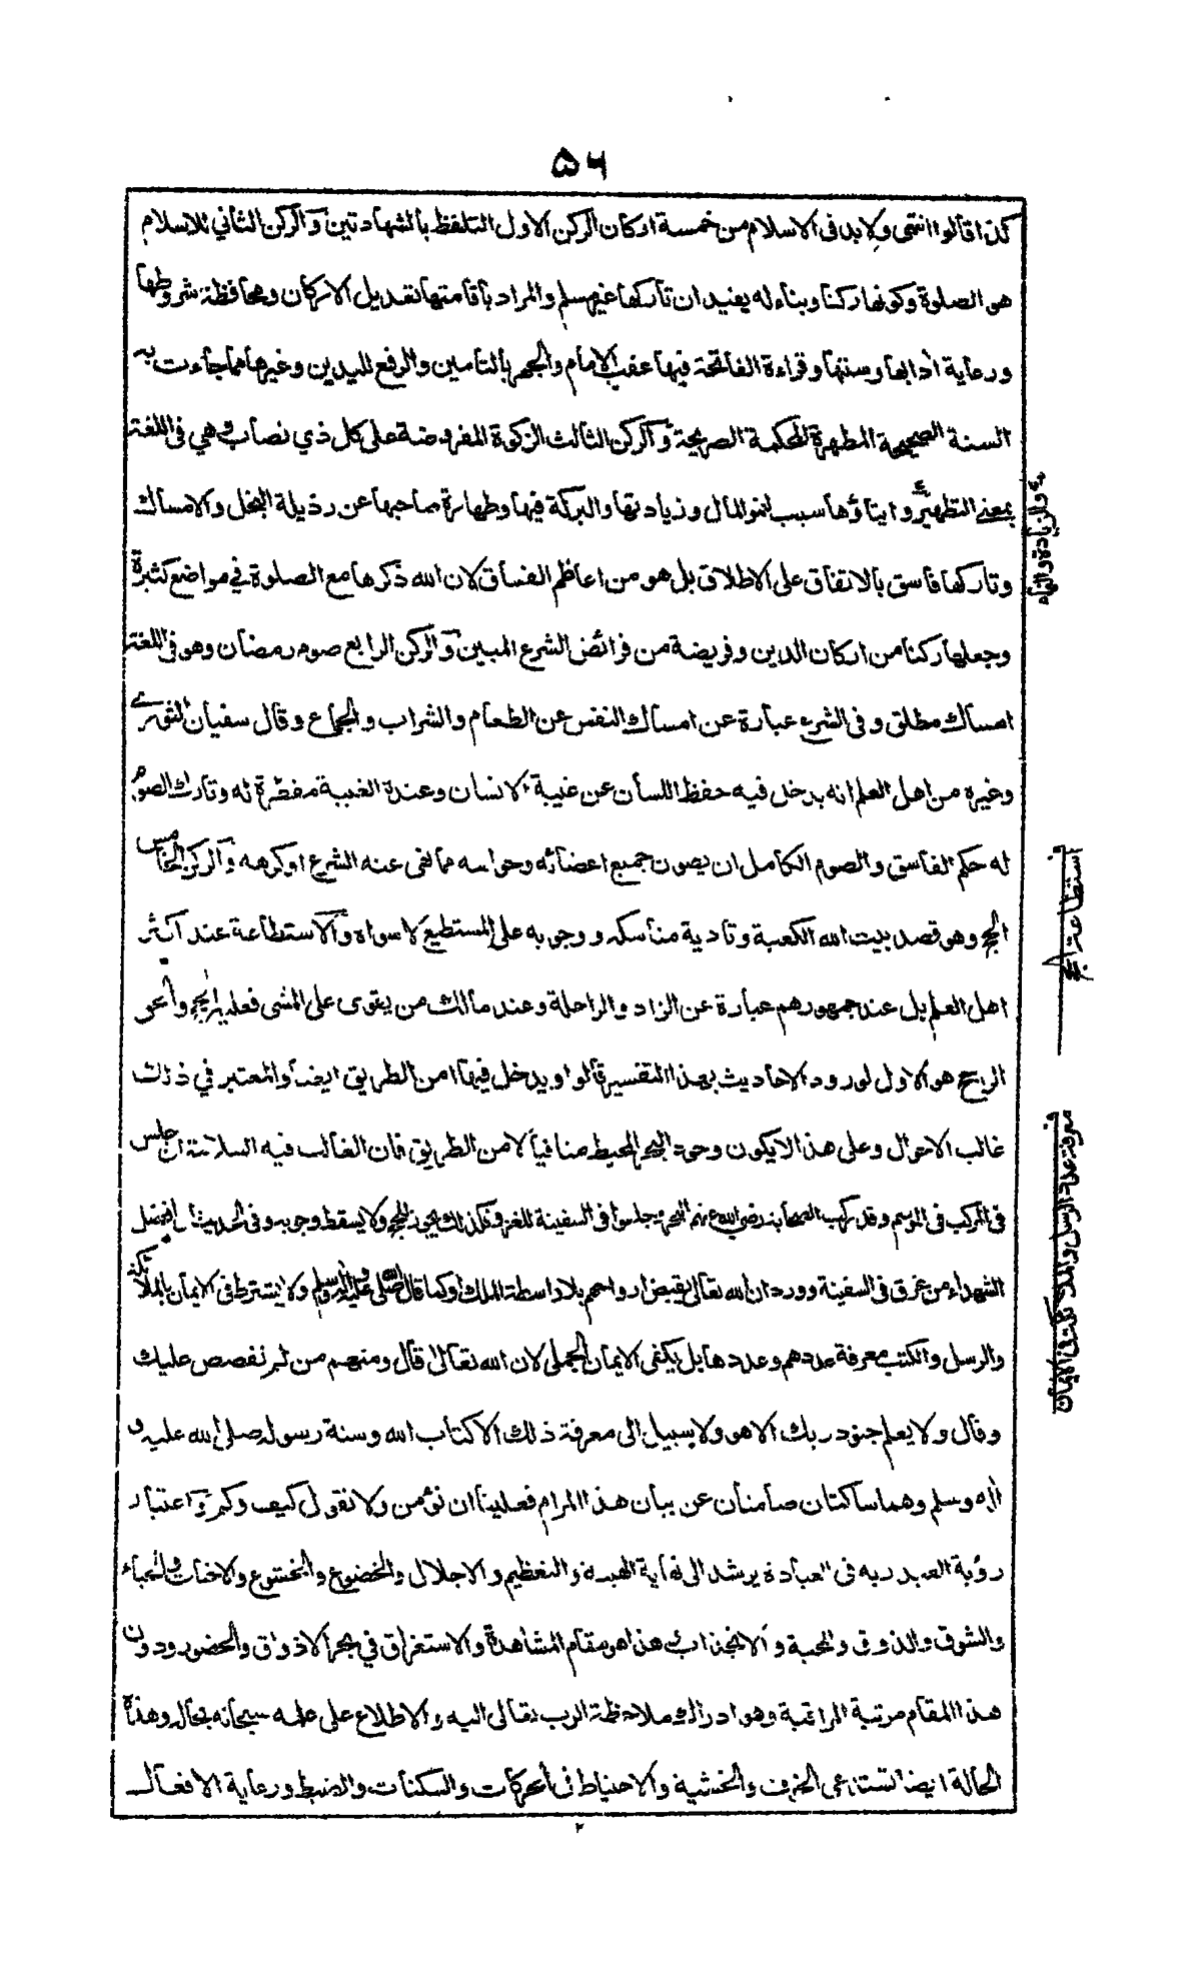 ۵۶
كذا قالوا انتهى ولابد فى الاسلام من خمسة اركان الركن الاول التلفظ بالشهادتين والركن الثاني للاسلام
هو الصلوة وكونها ركنا وبناء له يفيد ان تاركها غير مسلم والمراد باقامتها تعديل الاركان ومحافظة شروطها
ورعاية أدابها وسننها وقراءة الفاتحة فيها عقب الامام والجهر بالتامين والرفع لليدين وغيرها مما جاءت به
السنة الصحيحة المطهرة المحكمة الصريحة والركن الثالث الزكوة المفروضة على كل ذي نصاب وهي فى اللغة
بمعنى التطهير وايتاؤها سبب لنمو المال وزيادتها والبركة فيها وطهارة صاحبها عن رذيلة البخل والامساك
وتاركها فاسق بالاتفاق على الاطلاق بل هو من اعاظم الفساق لان الله ذكرها مع الصلوة في مواضع كثيرة
وجعلها ركنا من اركان الدين وفريضة من فرائض الشرع المبين والركن الرابع صوم رمضان وهو فى اللغة
امساك مطلق وفى الشرع عبارة عن امساك النفس عن الطعام والشراب والجماع وقال سفيان الثوري
وغيره من اهل العلم انه يدخل فيه حفظ اللسان عن غيبة الانسان وعنده الغيبة مفطرة له وتارك الصوم
له حكم الفاسق والصوم الكامل ان يصون جميع اعضائه وحواسه مما نهى عنه الشرع او كرهه والركن الخامس
الحج وهو قصد بيت الله الكعبة وتادية مناسكه ووجوبه على المستطيع لا سواه والاستطاعة عند اكثر
اهل العلم بل عند جمهورهم عبارة عن الزاد والراحلة وعند مالك من يقوى على المشى فعليه الحج والحق
الاريح هو الاول لورود الاحاديث بهذا التفسير قالوا ويدخل فيها امن الطريق ايضا والمعتبر في ذلك
غالب الاحوال وعلى هذا لا يكون وجود البحر المحيط منافيا لامن الطريق فان الغالب فيه السلامة ان جلس
فى المركب فى الموسم وقد ركب الصحابة رضي الله عنهم البحر وجلسوا فى السفينة للغزو فكذلك يجوز للحج ولا يسقط وجوبه وفى الحديث ان افضل
الشهداء من غرق فى السفينة وورد ان الله تعالى يقبض ارواحهم بلا واسطة الملك او كما قال صلى الله عليه واله وسلم ولا يشترط فى الايمان بالملائكة
والرسل والكتب معرفة عددهم وعددها بل يكفى الايمان الجملى لان الله تعالى قال ومنهم من لم نقصص عليك
وقال ولا يعلم جنود ربك الا هو ولا سبيل الى معرفة ذلك الا كتاب الله وسنة رسوله صلى الله عليه و
أله وسلم وهما ساكتان صامتان عن بيان هذا المرام فعلينا ان نؤمن ولا نقول كيف وكم واعتبار
رؤية العبد ربه فى العبادة يرشد الى نهاية الهيبة والتعظيم والاجلال والخضوع والخشوع والاخبات والحياء
والشوق والذوق والمحبة والانجذاب هذا هو مقام المشاهدة والاستغراق في بحر الاذواق والحضور ودون
هذا المقام مرتبة المراقبة وهو ادراك ملاحظة الرب تعالى اليه والاطلاع على علمه سبحانه بحاله وهذه
الحالة ايضا تستدعى الخوف والخشية والاحتياط فى الحركات والسكنات والضبط ورعاية الافعال
استطاعة الحج
معرفة عدد الرسل والملائكة فى الايمان
۲